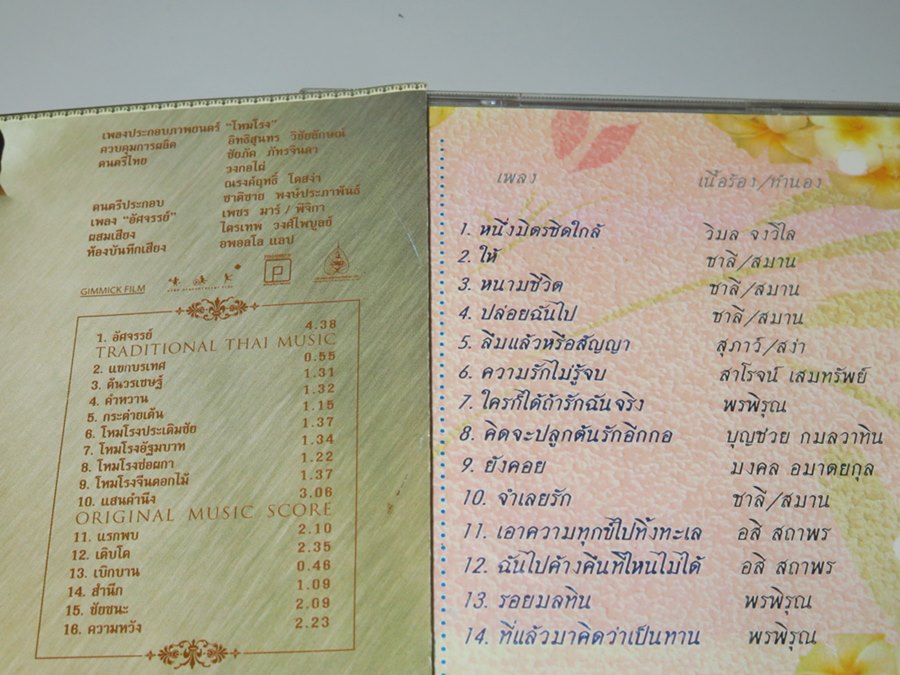 เพลงประกอบภาพยนตร์ "โหมโรง"
ควบคุมการผลิต อิทธิสุนทร วิชัยลักษณ์
ดนตรีไทย ชัยภัค ภัทรจินดา
วงกอไผ่
ณรงค์ฤทธิ์ โตสง่า
ดนตรีประกอบ ชาติชาย พงษ์ประภาพันธ์
เพลง "อัศจรรย์" เพชร มาร์ / พิจิกา
ผสมเสียง ไตรเทพ วงศ์ไพบูลย์
ห้องบันทึกเสียง อพอลโล แลป
GIMMICK FILM
1. อัศจรรย์ 4.38
TRADITIONAL THAI MUSIC
2. แขกบรเทศ 0.55
3. ต้นวรเชษฐ์ 1.31
4. คำหวาน 1.32
5. กระต่ายเต้น 1.15
6. โหมโรงประเดิมชัย 1.37
7. โหมโรงอัฐมบาท 1.34
8. โหมโรงช่อผกา 1.22
9. โหมโรงจีนดอกไม้ 1.37
10. แสนคำนึง 3.06
ORIGINAL MUSIC SCORE
11. แรกพบ 2.10
12. เติบโต 2.35
13. เบิกบาน 0.46
14. สำนึก 1.09
15. ชัยชนะ 2.09
16. ความหวัง 2.23
เพลง เนื้อร้อง/ทำนอง
1. หนึ่งมิตรชิดใกล้ วิมล จงวิไล
2. ให้ ชาลี/สมาน
3. หนามชีวิต ชาลี/สมาน
4. ปล่อยฉันไป ชาลี/สมาน
5. ลืมแล้วหรือสัญญา สุภาว์/สง่า
6. ความรักไม่รู้จบ สาโรจน์ เสมทรัพย์
7. ใครก็ได้ถ้ารักฉันจริง พรพิรุณ
8. คิดจะปลูกต้นรักอีกกอ บุญช่วย กมลวาทิน
9. ยังคอย มงคล อมาตยกุล
10. จำเลยรัก ชาลี/สมาน
11. เอาความทุกข์ไปทิ้งทะเล อสิ สถาพร
12. ฉันไปค้างคืนที่ไหนไม่ได้ อสิ สถาพร
13. รอยมลทิน พรพิรุณ
14. ที่แล้วมาคิดว่าเป็นทาน พรพิรุณ